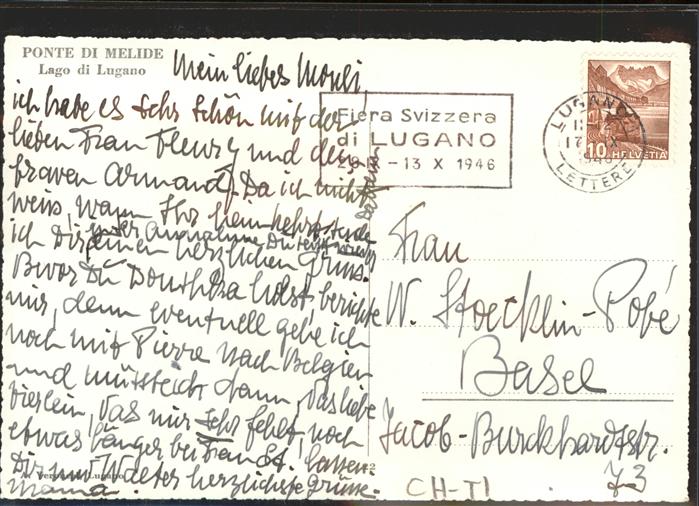 PONTE DI MELIDE
Lago di Lugano
Mein liebes Mouli,
ich habe es sehr schön mit der
lieben Frau Fleury und dem
braven Armand. Da ich nicht
weiss, wann Ihr heimkehrt, sende
in der Annahme Du seist wieder
daheim
ich Dir einen herzlichen Gruss.
Bevor Du Doudouza holst, berichte
mir, denn eventuell gehe ich
noch mit Pierre nach Belgien
und müsstest dann, das liebe
Tierlein, das mir sehr fehlt, noch
etwas länger bei Frau St. lassen.
Dir und Walter herzlichste Grüsse.
Mama.
Fiera Svizzera
di LUGANO
-13 X 1946
LUGANO
LETTERE
10 HELVETIA
Frau
W. Stoecklin-Pobé
Basel
Jacob-Burckhardtstr.
73
CH-TI